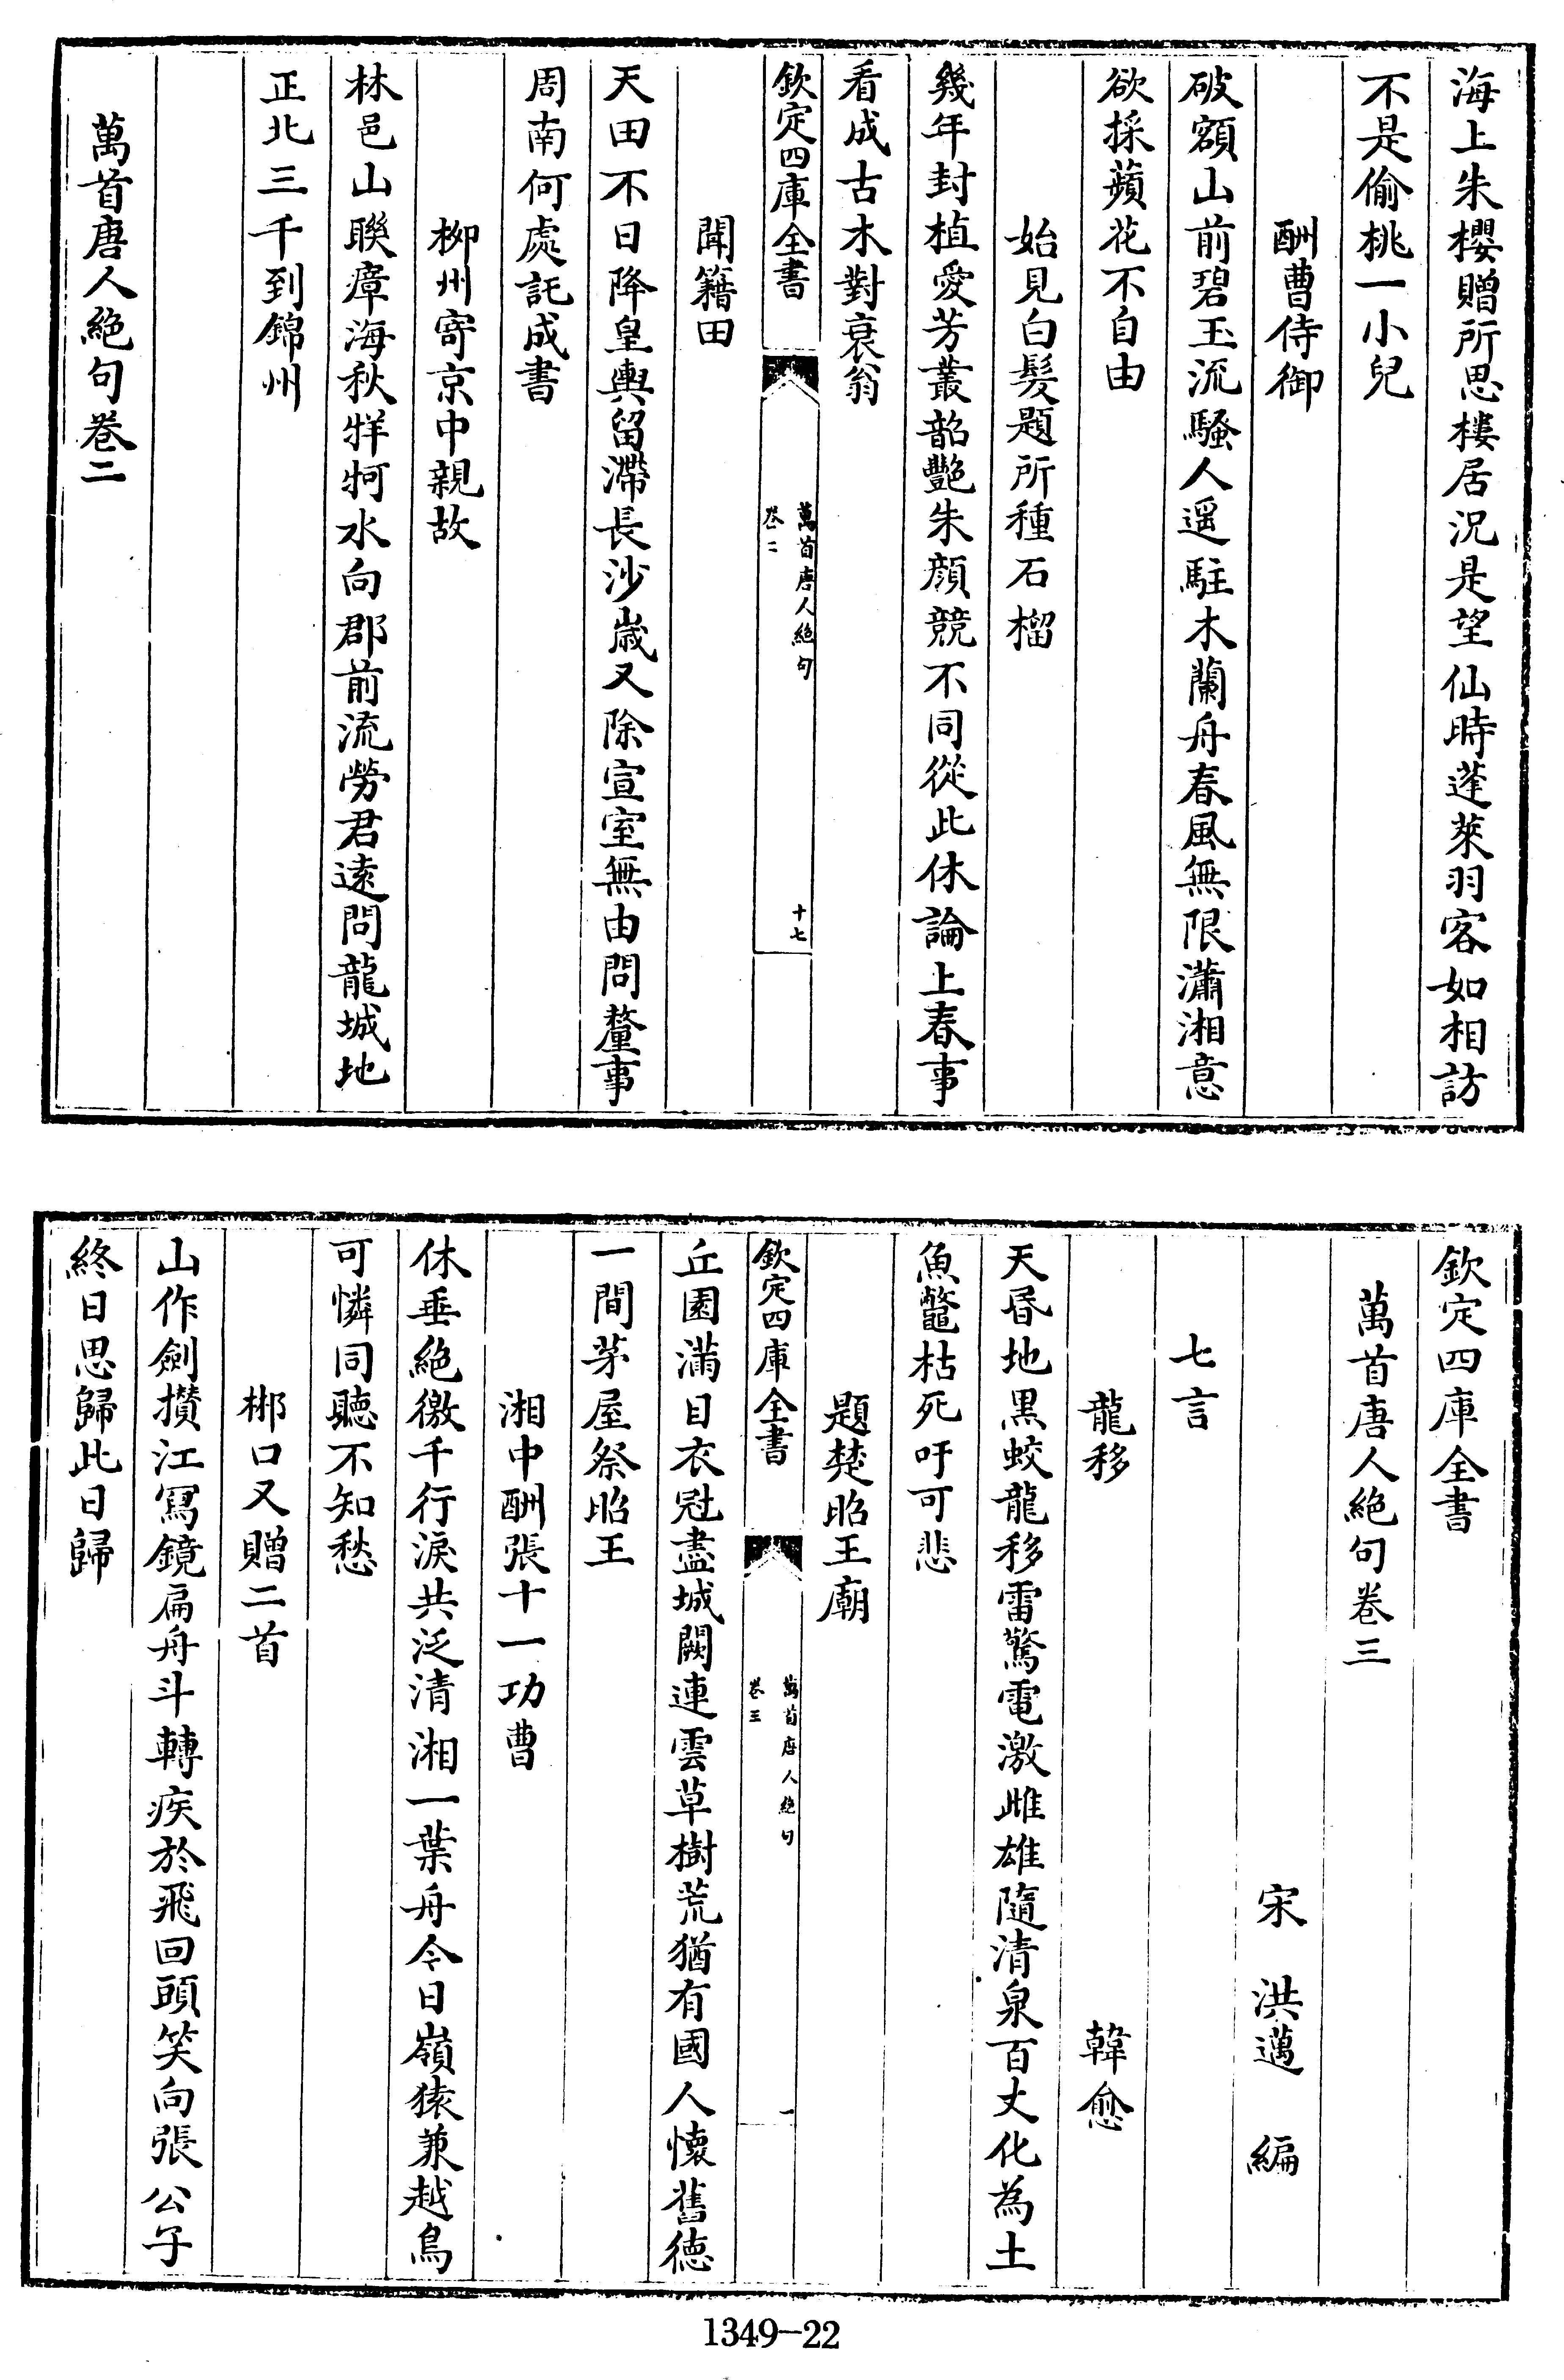 海上朱櫻贈所思樓居況是望仙時蓬萊羽客如相訪
不是偷桃一小兒
酬曹侍御
破額山前碧玉流騷人遥駐木蘭舟春風無限瀟湘意
欲採蘋花不自由
始見白髮題所種石榴
幾年封植愛芳叢韶艷朱顔競不同從此休論上春事
看成古木對衰翁
欽定四庫全書
萬首唐人絶句
卷二
十七
聞籍田
天田不日降皇輿留滯長沙歳又除宣室無由問釐事
周南何處託成書
柳州寄京中親故
林邑山聯瘴海秋牂牁水向郡前流勞君逺問龍城地
正北三千到錦州
萬首唐人絶句卷二
欽定四庫全書
萬首唐人絶句卷三
宋 洪邁 編
七言
龍移 韓愈
天昏地黒蛟龍移雷驚電激雌雄隨清泉百丈化為土
魚鼈枯死吁可悲
題楚昭王廟
欽定四庫全書
萬首唐人絶句
卷三
一
丘園滿目衣冠盡城闕連雲草樹荒猶有國人懷舊德
一間茅屋祭昭王
湘中酬張十一功曹
休垂絶徼千行淚共泛清湘一葉舟今日嶺猿兼越鳥
可憐同聽不知愁
郴口又贈二首
山作劍攅江寫鏡扁舟斗轉疾於飛回頭笑向張公子
終日思歸此日歸
1349-22